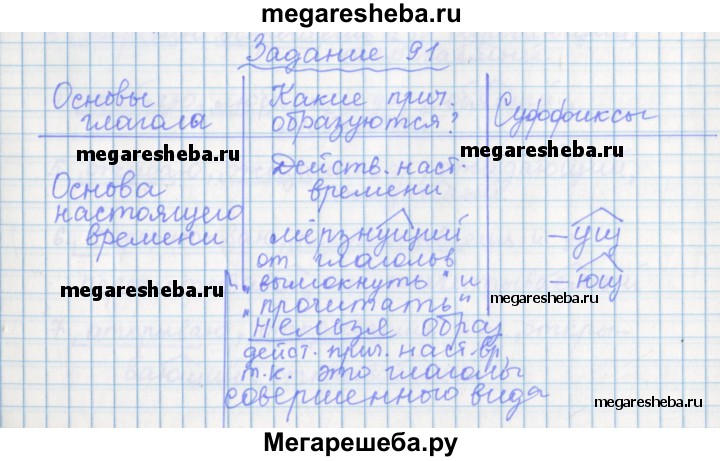 megaresheba.ru
Задание 91
Основы глагола
Какие прич. образуются?
Суффиксы
megaresheba.ru
megaresheba.ru
Основа
настоящего
времени
Действ. наст.
времени
мёрзнущий
от глаголов
„вымокнуть" и
„прочитать"
нельзя образ
дейст. прич. наст. вр,
т.к. это глаголы
совершенного вида
-ущ
-ющ
megaresheba.ru
megaresheba.ru
megaresheba.ru
megaresheba.ru
Мегарешеба.ру